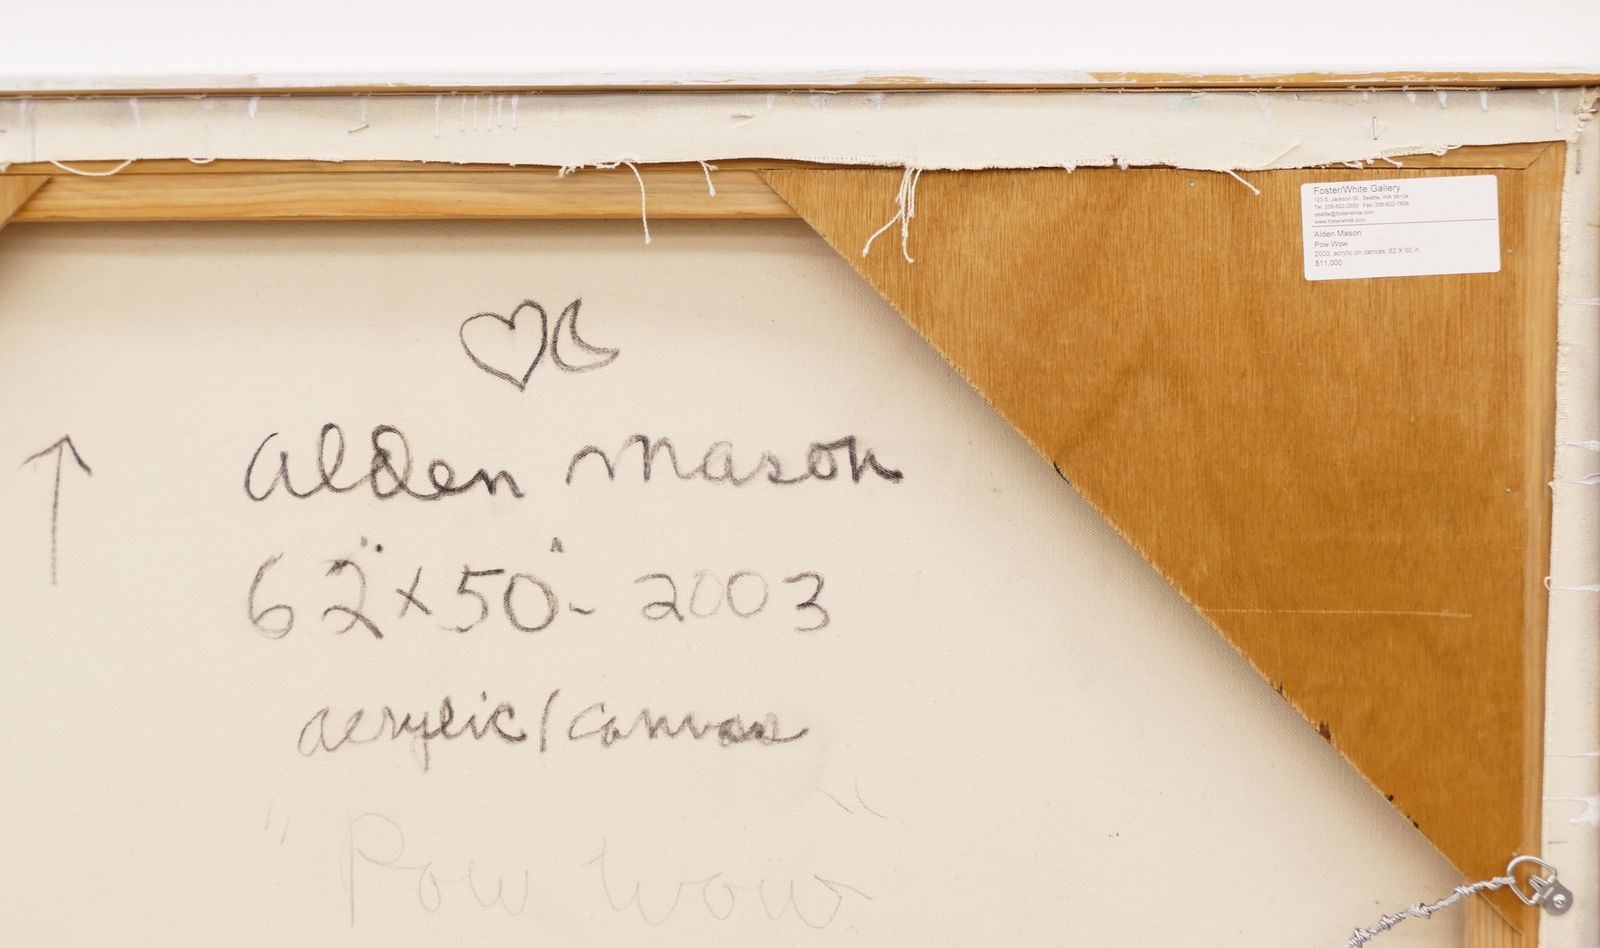 Foster/White Gallery
123 S. Jackson St., Seattle, WA 98104
Tel: 206-622-2833 Fax: 206-622-7606
seattle@fosterwhite.com
www.fosterwhite.com
Alden Mason
Pow Wow
2003, acrylic on canvas, 62 X 50 in.
$11,000
Alden Mason
62" x 50" - 2003
acrylic/canvas
"Pow Wow"